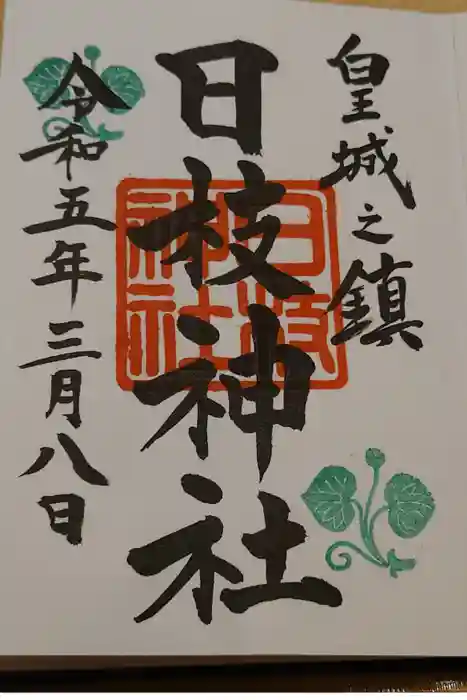 皇城之鎮
日枝神社
日枝神社
令和五年三月八日